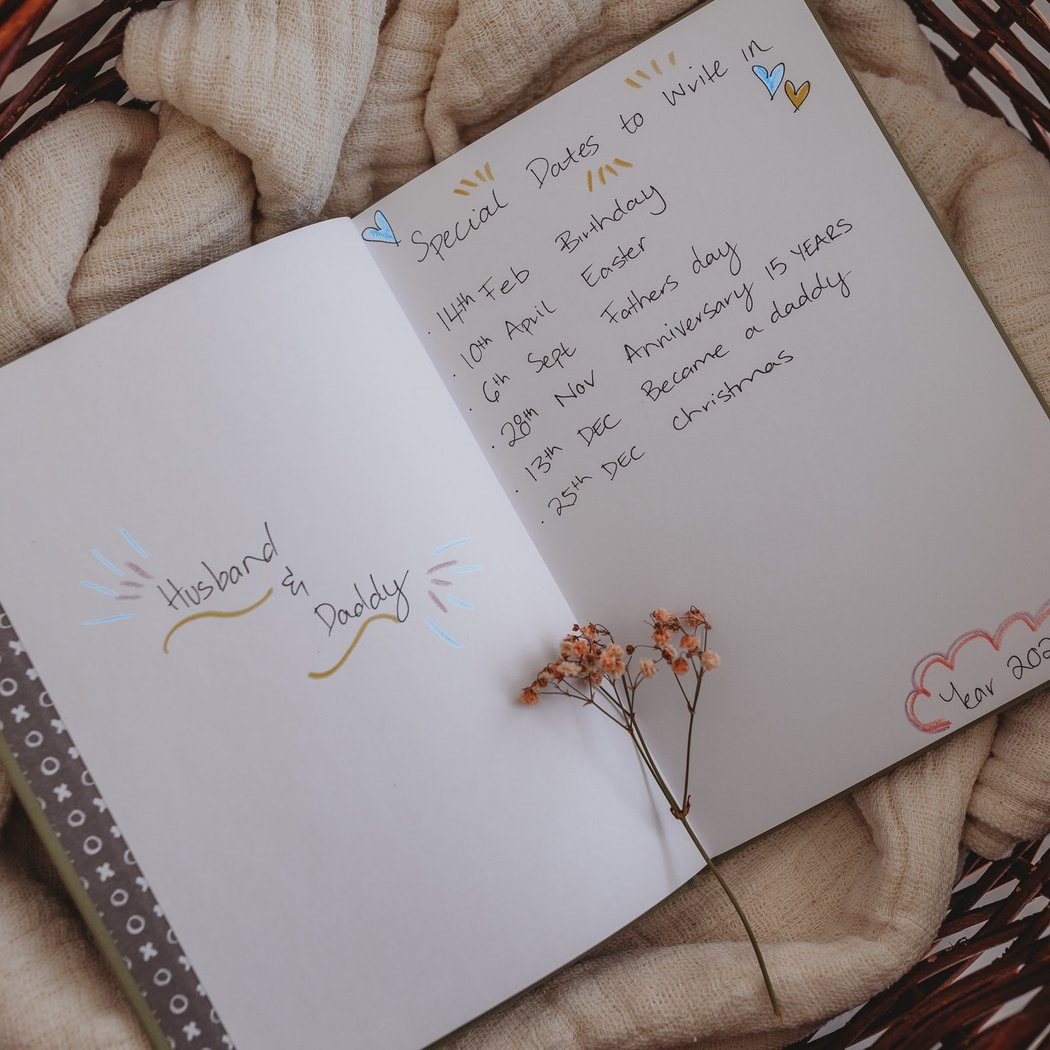 Husband
&
Daddy
Special Dates to Write in
· 14th Feb Birthday
· 10th April Easter
· 6th Sept Fathers day
· 28th Nov Anniversary 15 YEARS
· 13th DEC Became a daddy
· 25th DEC christmas
Year